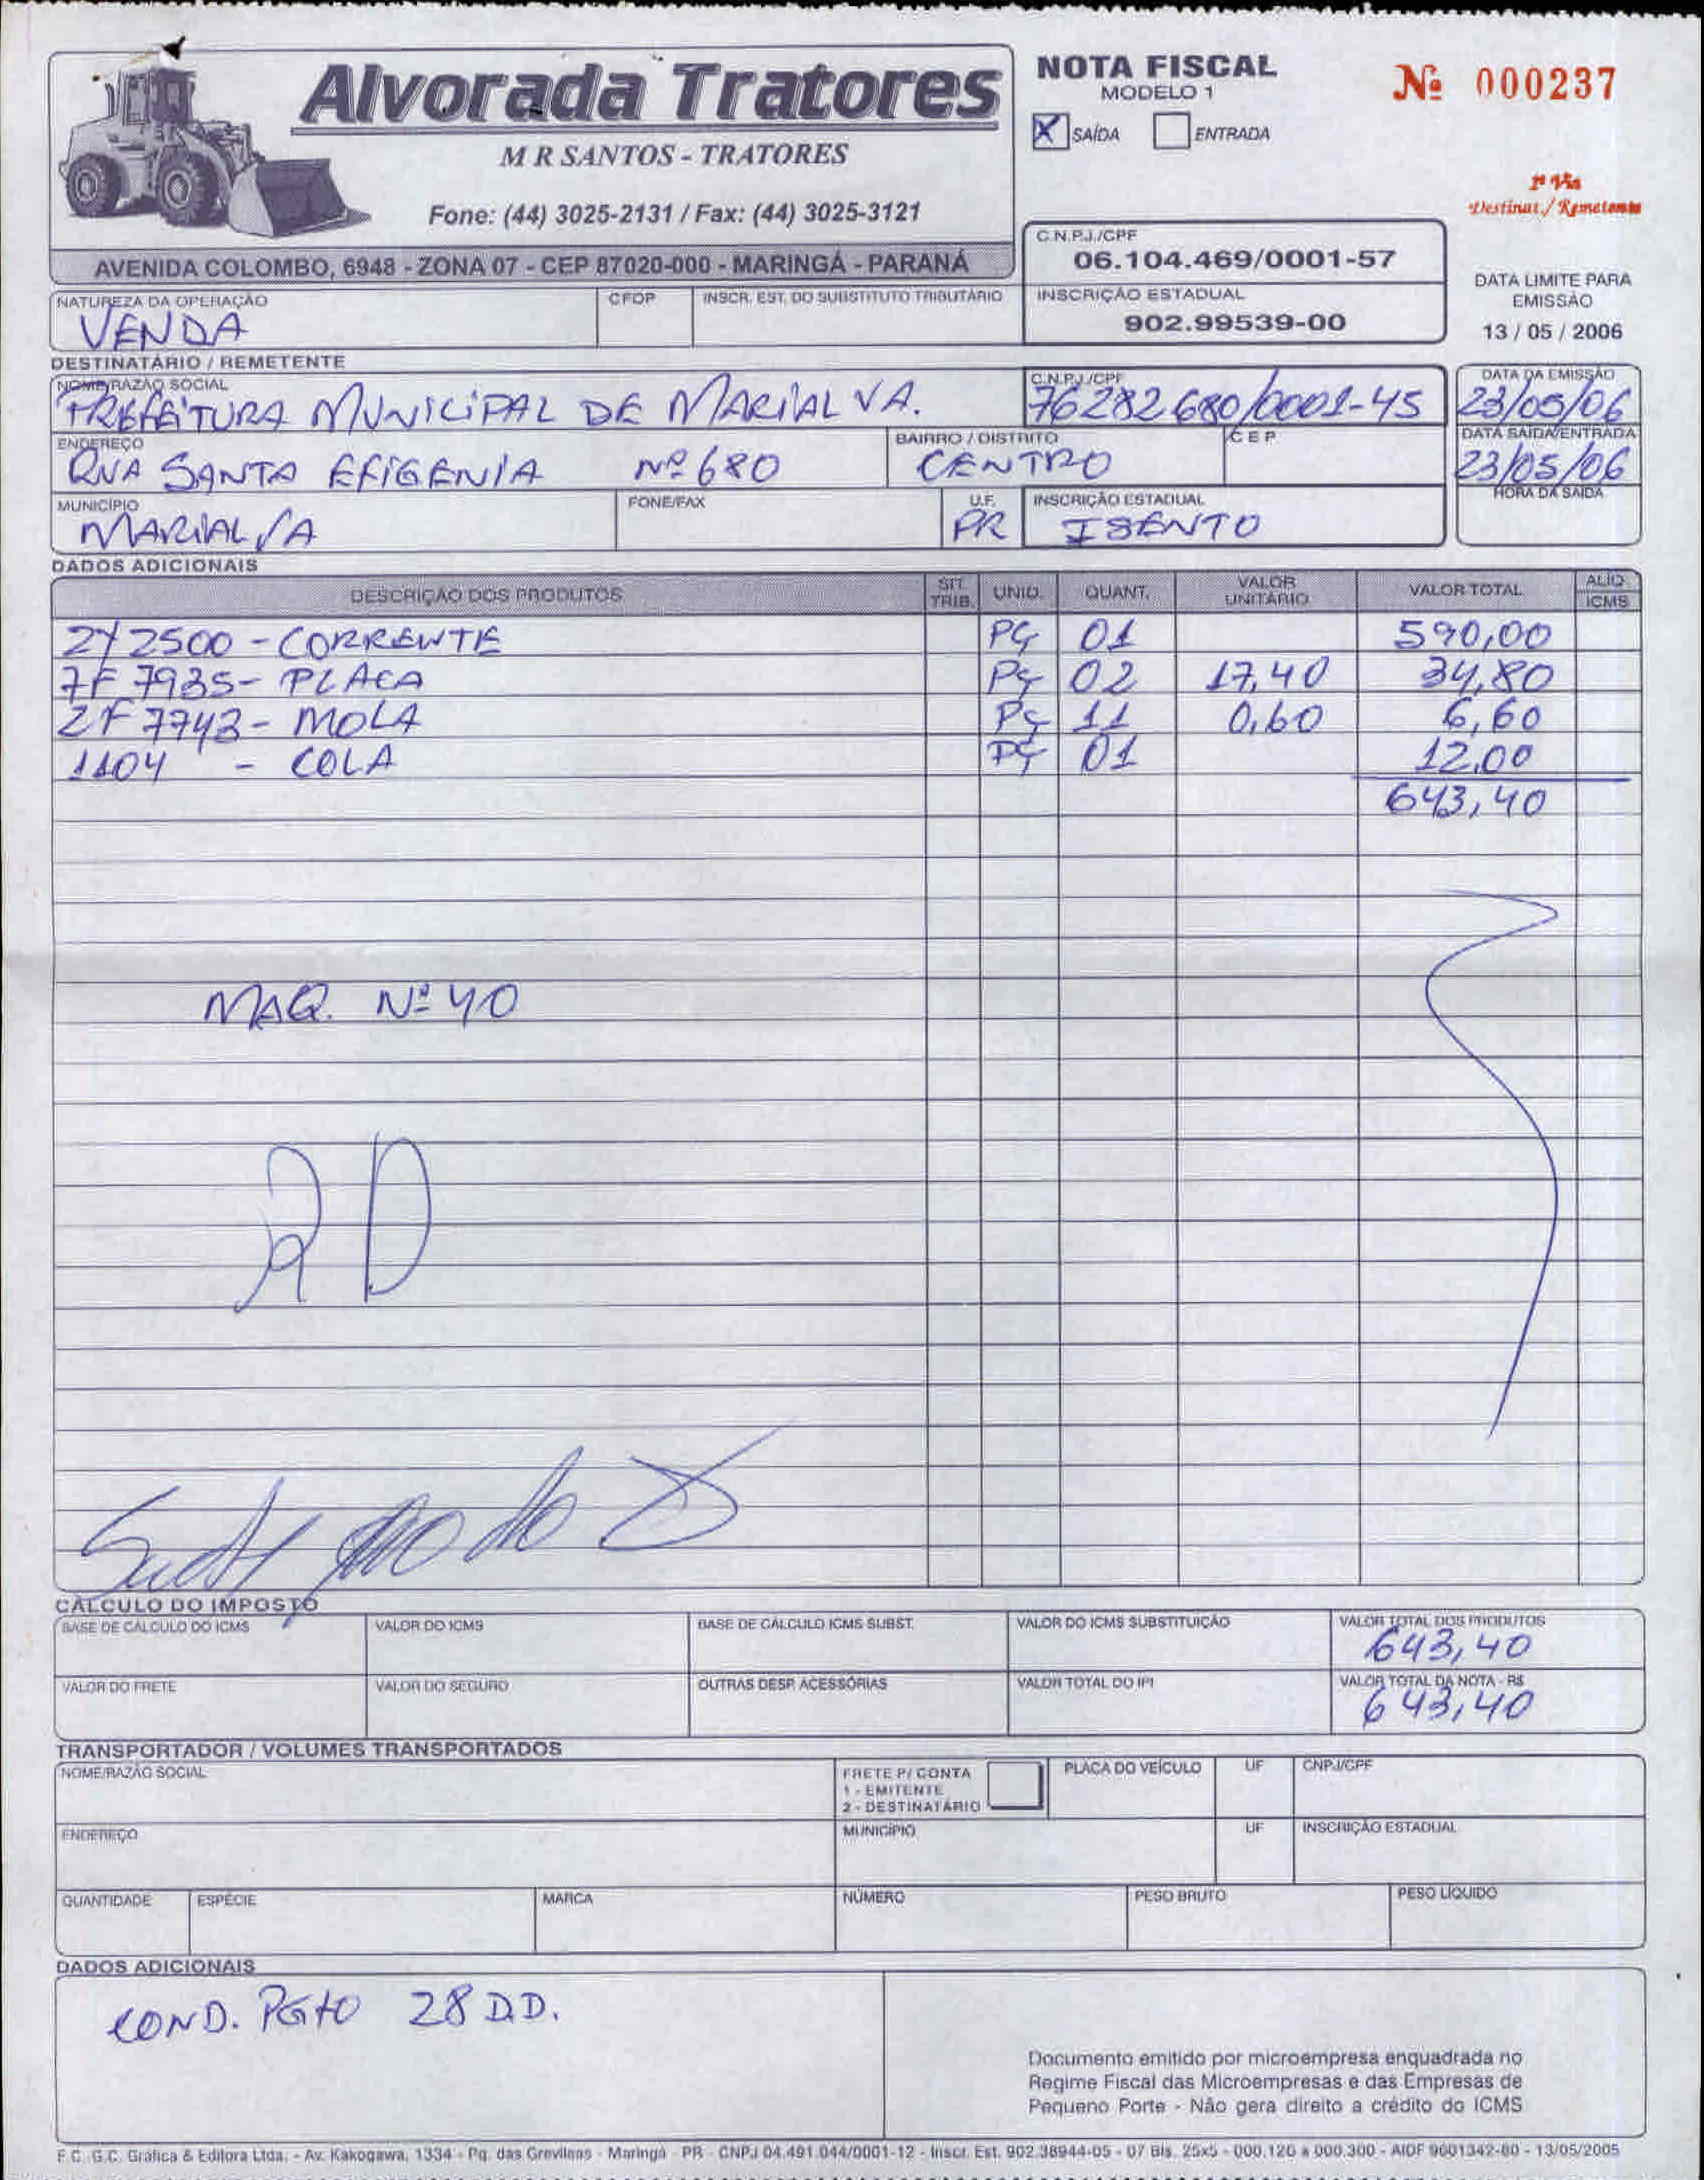 Alvorada Tratores
M R SANTOS - TRATORES
Fone: (44) 3025-2131 / Fax: (44) 3025-3121
AVENIDA COLOMBO, 6948 - ZONA 07 - CEP 87020-000 - MARINGÁ - PARANÁ
NOTA FISCAL
MODELO 1
X SAÍDA ENTRADA
Nº 000237
1ª Via
Destinat./Remetente
C.N.P.J./CPF
06.104.469/0001-57
INSCRIÇÃO ESTADUAL
902.99539-00
DATA LIMITE PARA
EMISSÃO
13 / 05 / 2006
NATUREZA DA OPERAÇÃO CFOP INSCR. EST. DO SUBSTITUTO TRIBUTÁRIO
VENDA
DESTINATÁRIO / REMETENTE
NOME/RAZÃO SOCIAL C.N.P.J./CPF DATA DA EMISSÃO
PREFEITURA MUNICIPAL DE MARIALVA. 76282680/0001-45 23/05/06
ENDEREÇO BAIRRO / DISTRITO CEP DATA SAÍDA/ENTRADA
RUA SANTA EFIGENIA Nº 680 CENTRO 23/05/06
MUNICÍPIO FONE/FAX U.F. INSCRIÇÃO ESTADUAL HORA DA SAÍDA
MARIALVA PR ISENTO
DADOS ADICIONAIS
DESCRIÇÃO DOS PRODUTOS SIT. TRIB. UNID. QUANT. VALOR UNITÁRIO VALOR TOTAL ALÍQ. ICMS
2Y2500 - CORRENTE PÇ 01 590,00
7F 7935 - PLACA PÇ 02 17,40 34,80
2F 7743 - MOLA PÇ 11 0,60 6,60
1104 - COLA PÇ 01 12,00
643,40
MAQ. Nº 40
CÁLCULO DO IMPOSTO
BASE DE CÁLCULO DO ICMS VALOR DO ICMS BASE DE CÁLCULO ICMS SUBST. VALOR DO ICMS SUBSTITUIÇÃO VALOR TOTAL DOS PRODUTOS
643,40
VALOR DO FRETE VALOR DO SEGURO OUTRAS DESP. ACESSÓRIAS VALOR TOTAL DO IPI VALOR TOTAL DA NOTA - R$
643,40
TRANSPORTADOR / VOLUMES TRANSPORTADOS
NOME/RAZÃO SOCIAL FRETE P/ CONTA PLACA DO VEÍCULO UF CNPJ/CPF
1 - EMITENTE
2 - DESTINATÁRIO
ENDEREÇO MUNICÍPIO UF INSCRIÇÃO ESTADUAL
QUANTIDADE ESPÉCIE MARCA NÚMERO PESO BRUTO PESO LÍQUIDO
DADOS ADICIONAIS
COND. PGTO 28 D.D.
Documento emitido por microempresa enquadrada no
Regime Fiscal das Microempresas e das Empresas de
Pequeno Porte - Não gera direito a crédito do ICMS
F.C. G.C. Gráfica & Editora Ltda. - Av. Kakogawa, 1334 - Pq. das Grevíleas - Maringá - PR - CNPJ 04.491.044/0001-12 - Inscr. Est. 902.38944-05 - 07 Bls. 25x5 - 000.126 a 000.300 - AIDF 9601342-80 - 13/05/2005